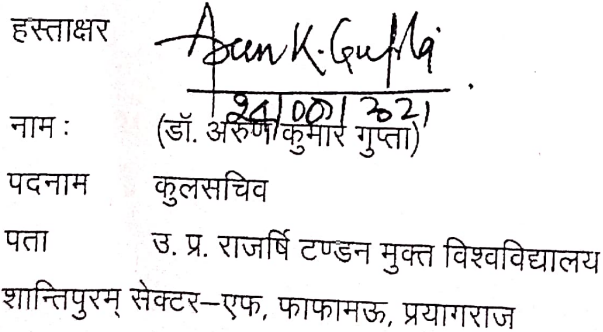 हस्ताक्षर Arun K. Gupta
नाम : (डॉ. अरुण कुमार गुप्ता)
पदनाम कुलसचिव
पता उ. प्र. राजर्षि टण्डन मुक्त विश्वविद्यालय
शान्तिपुरम् सेक्टर–एफ, फाफामऊ, प्रयागराज